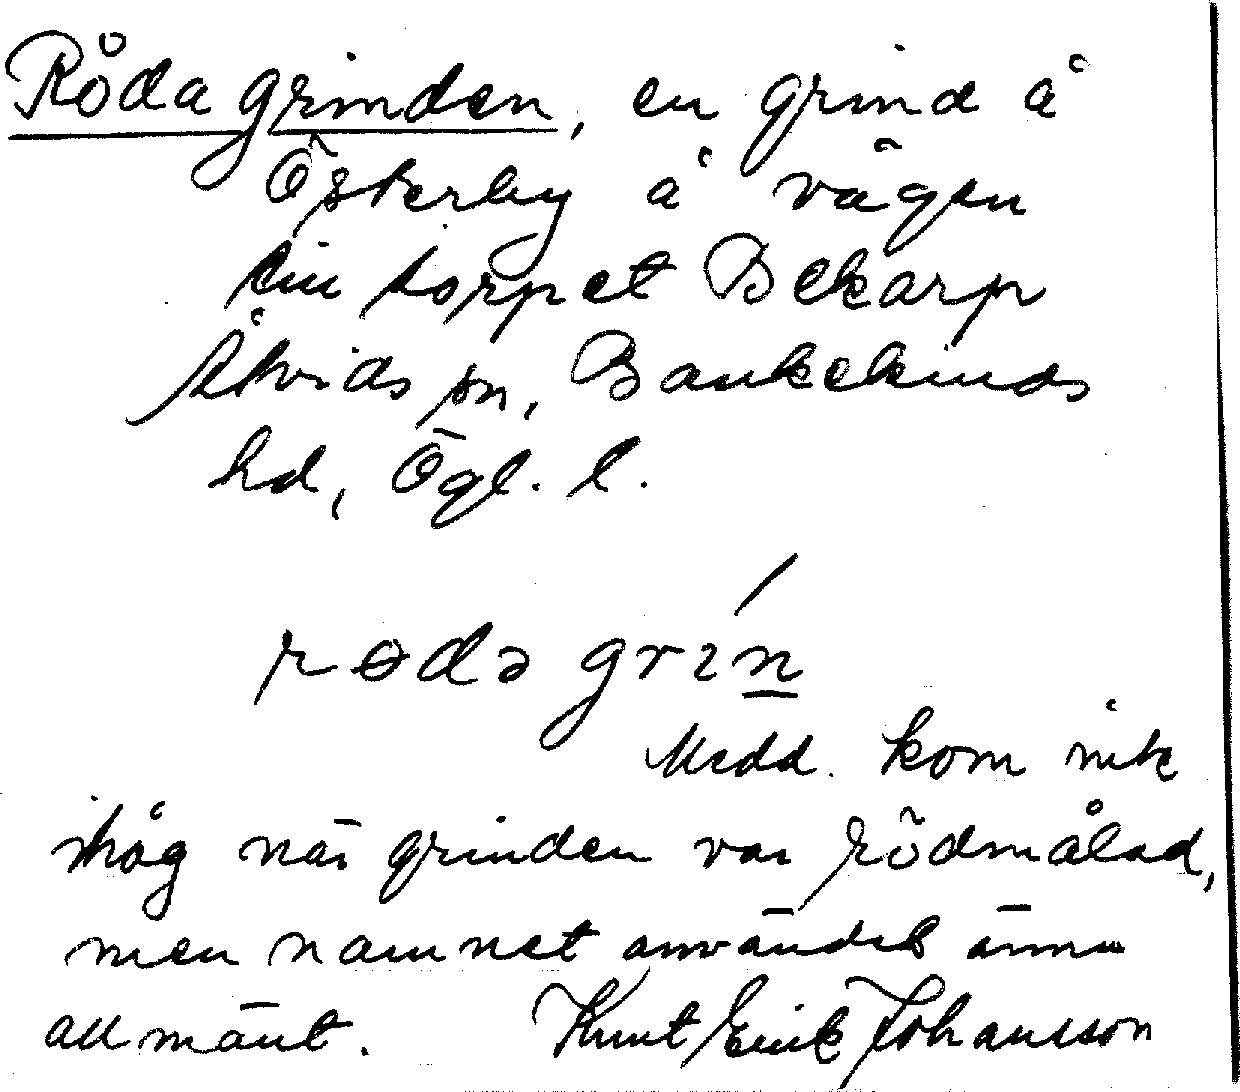 Röda grinden, en grind å
Österby å vägen
till torpet Bekarp
Åtvids sn, Bankekinds
hd, Ögl. l.
rөdə grín
Medd. kom inte
ihåg när grinden var rödmålad,
men namnet användes ännu
allmänt. Knut Erik Johansson